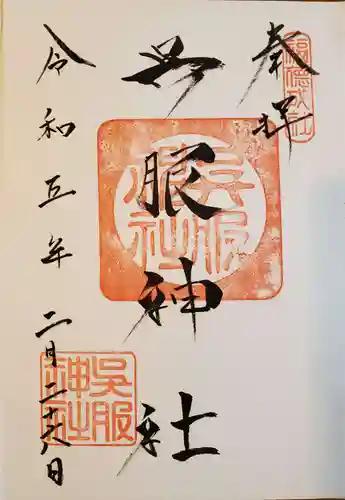 奉拝
福徳戎社
呉服神社
呉服神社
令和五年二月二十八日
呉服神社